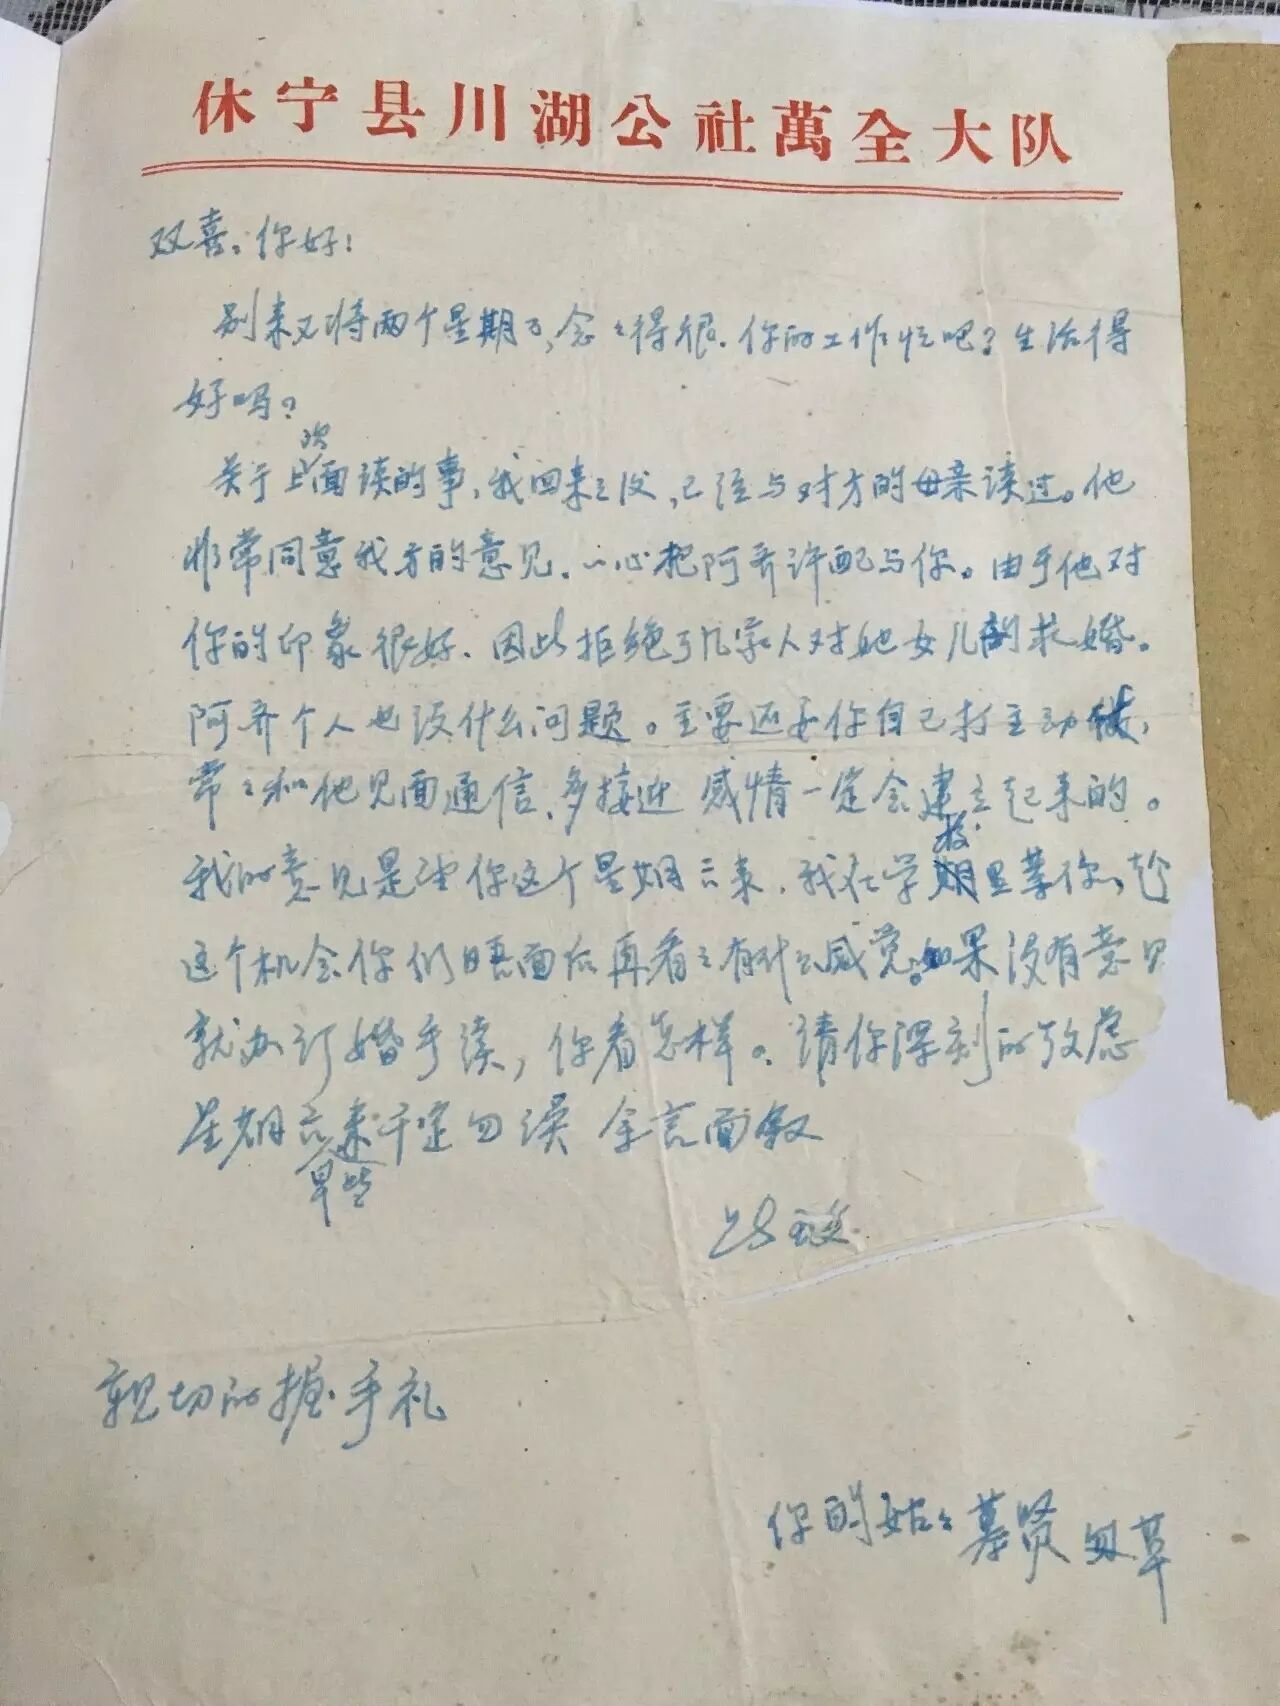 休宁县川湖公社萬全大队
双喜。你好！
别来又将两个星期了，念々得很．你的工作忙吧？生活得
好吗？
关于上次面谈的事，我回来之后，已经与对方的母亲谈过。他
非常同意我方的意见．一心把阿乔许配与你。由于他对
你的印象很好．因此拒绝了几家人对她女儿的求婚。
阿乔个人也没什么问题。主要还要你自己打主动仗，
常々和他见面通信．多接近 感情一定会建立起来的。
我的意见是望你这个星期六来．我在学校里等你，趁
这个机会你们晤面后再看々有什么感觉。如果没有意见
就办订婚手续，你看怎样。请你深刻的考虑
星期六早些来千定勿误 余言面叙
此致
亲切的握手礼
你的姑々慕贤 匆草